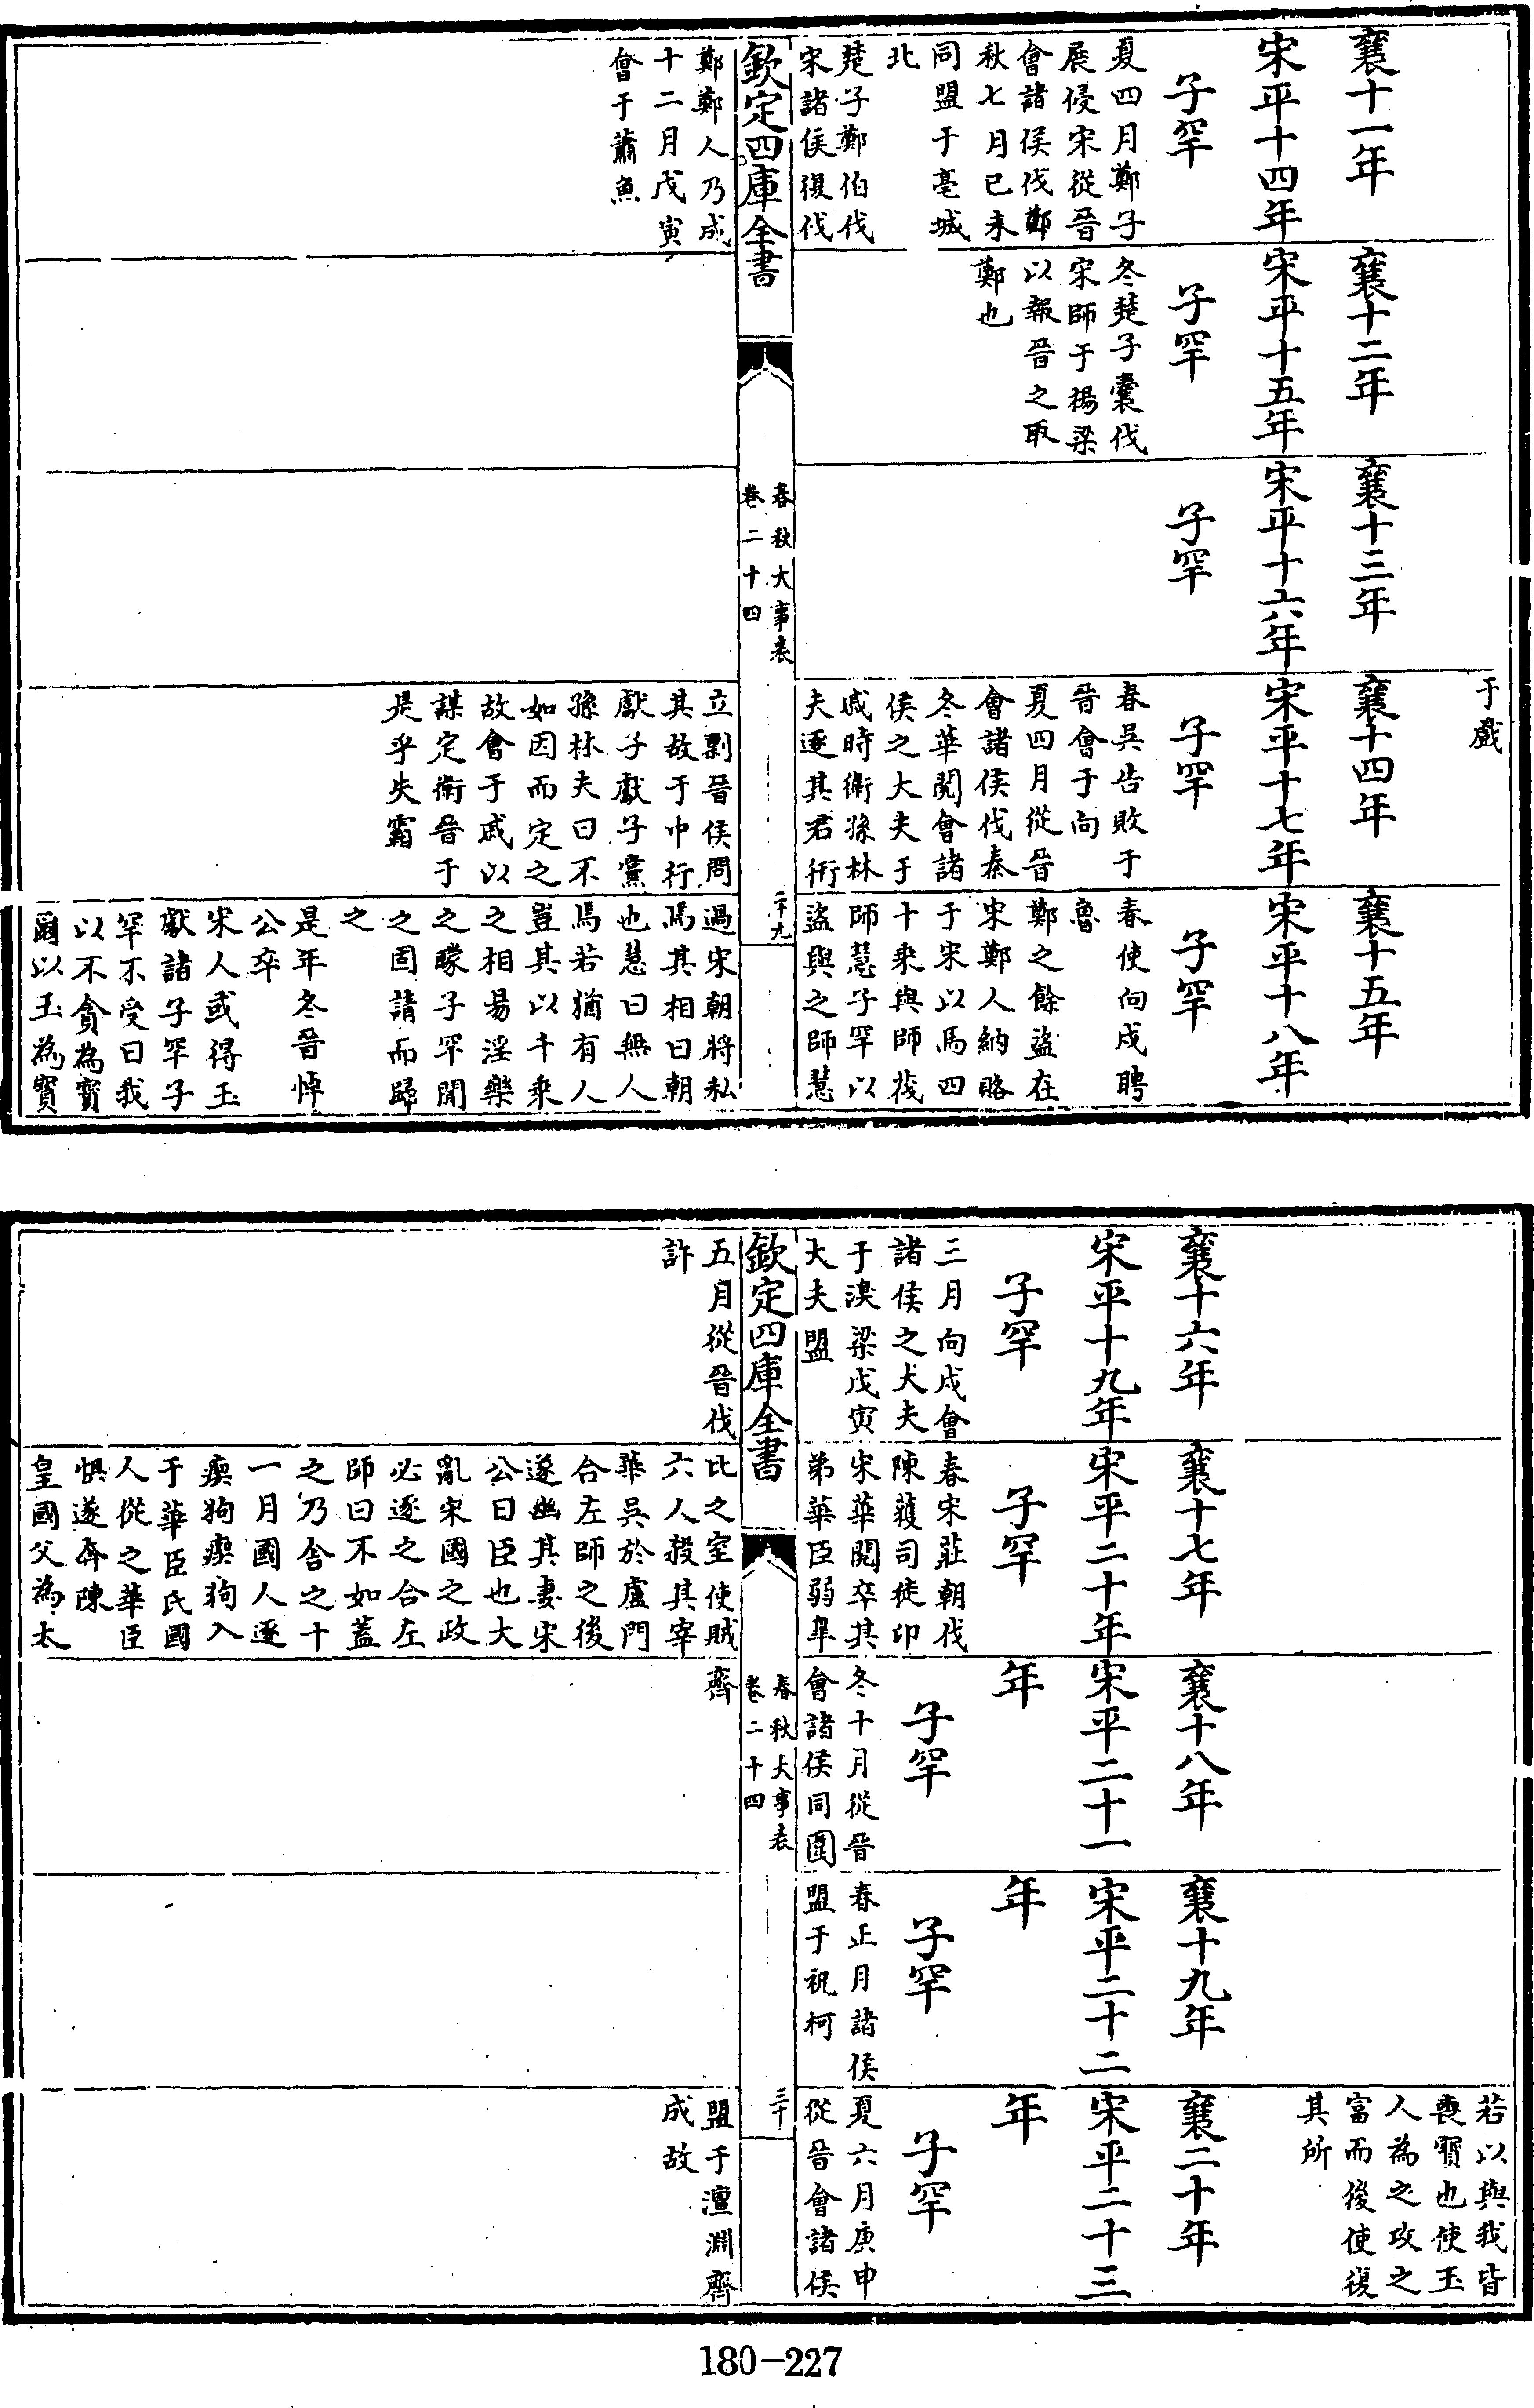 襄十一年
宋平十四年
子罕
夏四月鄭子
展侵宋從晉
會諸侯伐鄭
秋七月已未
同盟于亳城
北
楚子鄭伯伐
宋諸侯復伐
鄭鄭人乃成
十二月戊寅
會于蕭魚
襄十二年
宋平十五年
子罕
冬楚子囊伐
宋師于楊梁
以報晉之取
鄭也
襄十三年
宋平十六年
子罕
于戲
襄十四年
宋平十七年
子罕
春吳告敗于
晉會于向
夏四月從晉
會諸侯伐秦
冬華閱會諸
侯之大夫于
戚時衛孫林
夫逐其君衎
立剽晉侯問
其故于中行
獻子獻子黨
孫林夫曰不
如因而定之
故會于戚以
謀定衛晉于
是乎失霸
襄十五年
宋平十八年
子罕
春使向戌聘
魯
鄭之餘盜在
宋鄭人納賂
于宋以馬四
十乘與師茷
師慧子罕以
盜與之師慧
過宋朝將私
焉其相曰朝
也慧曰無人
焉若猶有人
豈其以千乘
之相易淫樂
之矇子罕聞
之固請而歸
之
是年冬晉悼
公卒
宋人或得玉
獻諸子罕子
罕不受曰我
以不貪為寶
爾以玉為寶
欽定四庫全書
春秋大事表
卷二十四
二十九
襄十六年
宋平十九年
子罕
三月向戌會
諸侯之大夫
于溴梁戊寅
大夫盟
五月從晉伐
許
襄十七年
宋平二十年
子罕
春宋莊朝伐
陳獲司徒卬
宋華閱卒其
弟華臣弱臯
比之室使賊
六人殺其宰
華吳於盧門
合左師之後
遂幽其妻宋
公曰臣也大
亂宋國之政
必逐之合左
師曰不如蓋
之乃舍之十
一月國人逐
瘈狗瘈狗入
于華臣氏國
人從之華臣
懼遂奔陳
皇國父為太
襄十八年
宋平二十一
年
子罕
冬十月從晉
會諸侯同圍
齊
襄十九年
宋平二十二
年
子罕
春正月諸侯
盟于祝柯
若以與我皆
喪寶也使玉
人為之攻之
富而後使復
其所
襄二十年
宋平二十三
年
子罕
夏六月庚申
從晉會諸侯
盟于澶淵齊
成故
欽定四庫全書
春秋大事表
卷二十四
三十
180-227